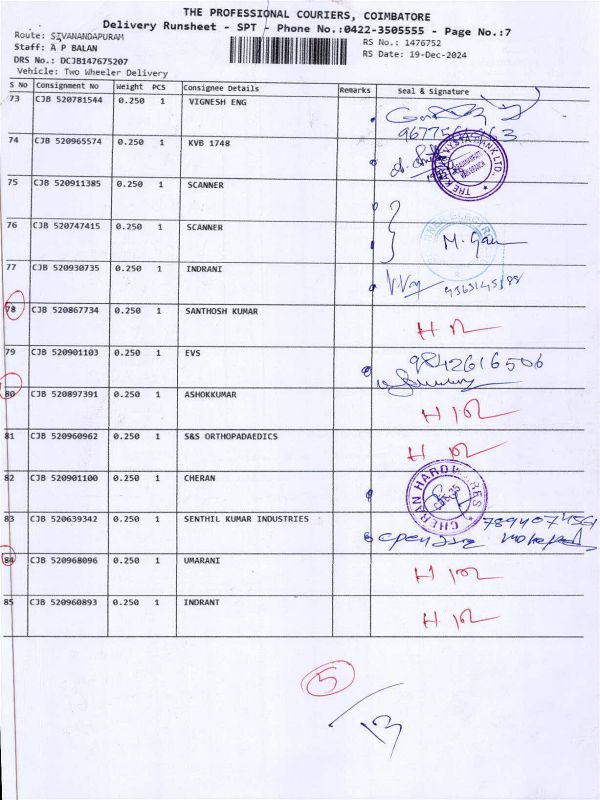 THE PROFESSIONAL COURIERS, COIMBATORE
Delivery Runsheet - SPT - Phone No.:0422-3505555 - Page No.:7
Route: SIVANANDAPURAM
RS No.: 1476752
Staff: A P BALAN
RS Date: 19-Dec-2024
DRS No.: DCJB147675207
Vehicle: Two Wheeler Delivery
S No Consignment No Weight PCS Consignee Details Remarks Seal & signature
73 CJB 520781544 0.250 1 VIGNESH ENG
74 CJB 520965574 0.250 1 KVB 1748
75 CJB 520911385 0.250 1 SCANNER
76 CJB 520747415 0.250 1 SCANNER M. Gan
77 CJB 520930735 0.250 1 INDRANI
78 CJB 520867734 0.250 1 SANTHOSH KUMAR
79 CJB 520901103 0.250 1 EVS 9842616506
80 CJB 520897391 0.250 1 ASHOKKUMAR
81 CJB 520960962 0.250 1 S&S ORTHOPADAEDICS
82 CJB 520901100 0.250 1 CHERAN CHERAN HARDWARES
83 CJB 520639342 0.250 1 SENTHIL KUMAR INDUSTRIES
84 CJB 520968096 0.250 1 UMARANI
85 CJB 520960893 0.250 1 INDRANT
5
13